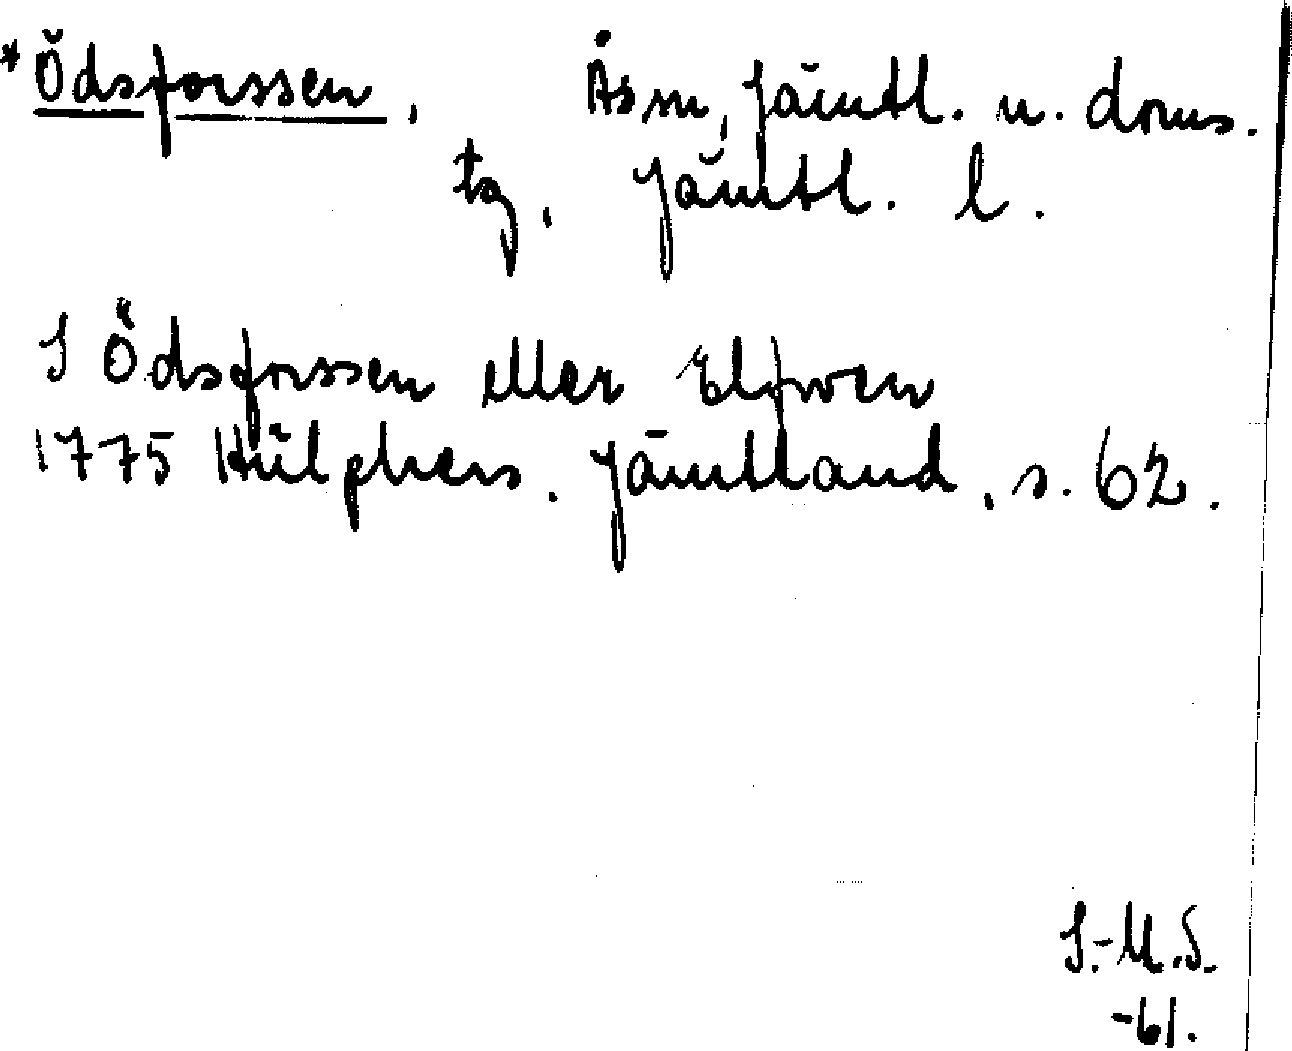 *Ödsforssen, Åsn, Jämtl. n. doms.
tg, Jämtl. l.
I Ödsforssen eller Elfwen
1775 Hülphers. Jämtland, s. 62.
I.-M.S.
-61.